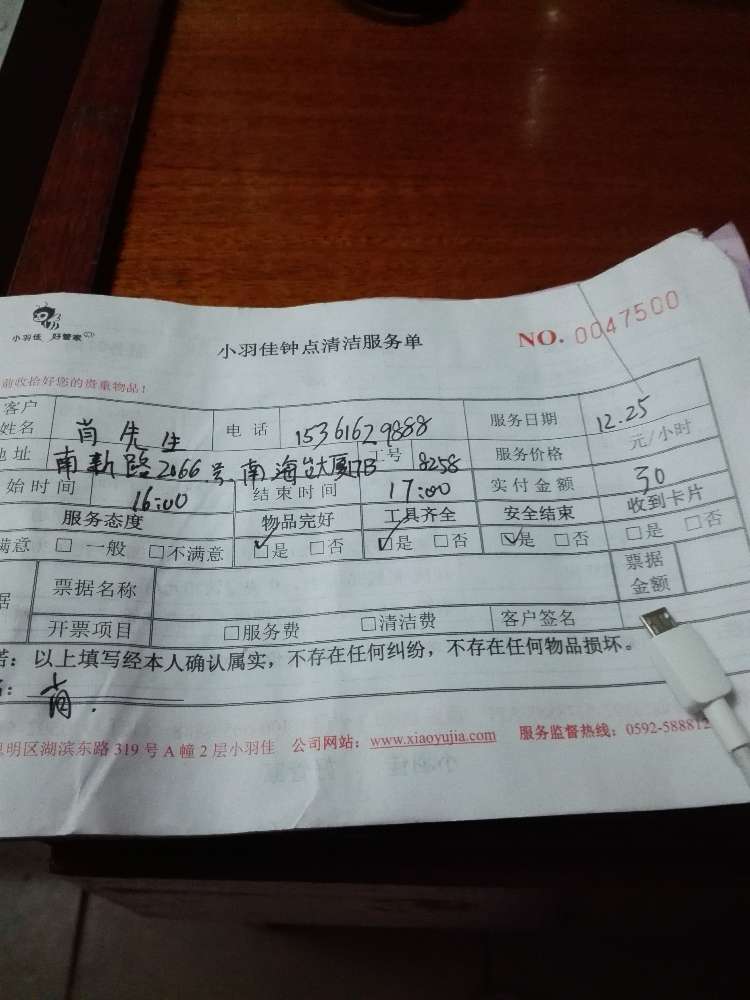 小羽佳 好管家
小羽佳钟点清洁服务单
NO. 0047500
前收拾好您的贵重物品！
客户姓名 肖先生 电话 15361629888 服务日期 12.25
地址 南新路2066号、南海大厦17B 工号 8258 服务价格 元/小时
始时间 16:00 结束时间 17:00 实付金额 30
服务态度 物品完好 工具齐全 安全结束 收到卡片
满意 □ 一般 □不满意 ☑是 □否 ☑是 □否 ☑是 □否 □是 □否
据 票据名称 票据金额
开票项目 □服务费 □清洁费 客户签名
：以上填写经本人确认属实，不存在任何纠纷，不存在任何物品损坏。
：肖.
明区湖滨东路319号A幢2层小羽佳 公司网站：www.xiaoyujia.com 服务监督热线：0592-588812